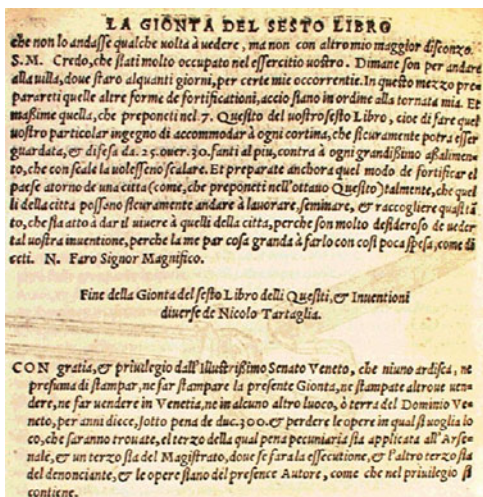 LA GIONTA DEL SESTO LIBRO
che non lo andasse qualche uolta à uedere, ma non con altro mio maggior disconzo.
S.M. Credo, che stati molto occupato nel essercitio uostro. Dimane son per andare
alla uilla, doue staro alquanti giorni, per certe mie occorrentie. In questo mezzo pre
parareti quelle altre forme de fortificationi, accio siano in ordine alla tornata mia. Et
maßime quella, che preponeti nel 7. Quesito del uostro sesto Libro, cioe di fare quel
uostro particolar ingegno di accommodar à ogni cortina, che sicuramente potra esser
guardata, & difesa da. 25. ouer. 30. fanti al piu, contra à ogni grandißimo assalimen=
to, che con scale la uolesseno scalare. Et preparate anchora quel modo de fortificar el
paese atorno de una citta (come, che preponeti nell'ottauo Quesito) talmente, che quel
li della citta possano sicuramente andare à lauorare, seminare, & raccogliere quasi tã
to, che sia atto à dar il uiuere à quelli della citta, perche son molto desideroso de ueder
tal uostra inuentione, perche la me par cosa granda à farlo con cosi poca spesa, come di
ceti. N. Faro Signor Magnifico.
Fine della Gionta del sesto Libro delli Quesiti, & Inuentioni
diuerse de Nicolo Tartaglia.
CON gratia, & priuilegio dall'Illustrißimo Senato Veneto, che niuno ardisca, ne
presuma di stampar, ne far stampare la presente Gionta, ne stampate altroue uen=
dere, ne far uendere in Venetia, ne in alcuno altro luoco, ò terra del Dominio Ve=
neto, per anni diece, sotto pena de duc. 300. & perdere le opere in qual si uoglia lo
co, che saranno trouate, el terzo della qual pena pecuniaria sia applicata all'Arse=
nale, & un terzo sia del Magistrato, doue se fara la essecutione, & l'altro terzo sia
del denonciante, & le opere siano del presente Autore, come che nel priuilegio si
contiene.